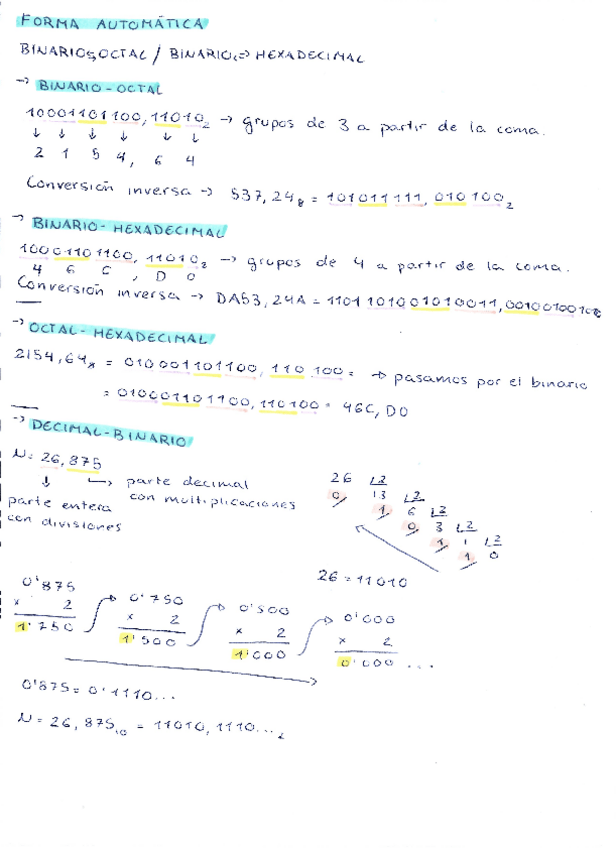 FORMA AUTOMÁTICA
BINARIO⇔OCTAL / BINARIO⇔HEXADECIMAL
→ BINARIO - OCTAL
10001101100,11010₂ → grupos de 3 a partir de la coma.
↓ ↓ ↓ ↓ ↓ ↓
2 1 5 4, 6 4
Conversión inversa → 537,24₈ = 101011111,010100₂
→ BINARIO - HEXADECIMAL
10001101100,11010₂ → grupos de 4 a partir de la coma.
4 6 C , D 0
Conversión inversa → DA53,24A = 1101101001010011,001001001010
→ OCTAL - HEXADECIMAL
2154,64₈ = 010001101100,110100 = → pasamos por el binario
= 010001101100,110100 = 46C,D0
→ DECIMAL - BINARIO
N = 26,875
↓ ↳ parte decimal con multiplicaciones
parte entera
con divisiones
26 |2
0 13 |2
1 6 |2
0 3 |2
1 1 |2
1 0
26 = 11010
0'875 → 0'750 → 0'500 → 0'000
× 2 × 2 × 2 × 2
1'750 1'500 1'000 0'000 ...
0'875 = 0'1110...
N = 26,875₁₀ = 11010,1110...₂